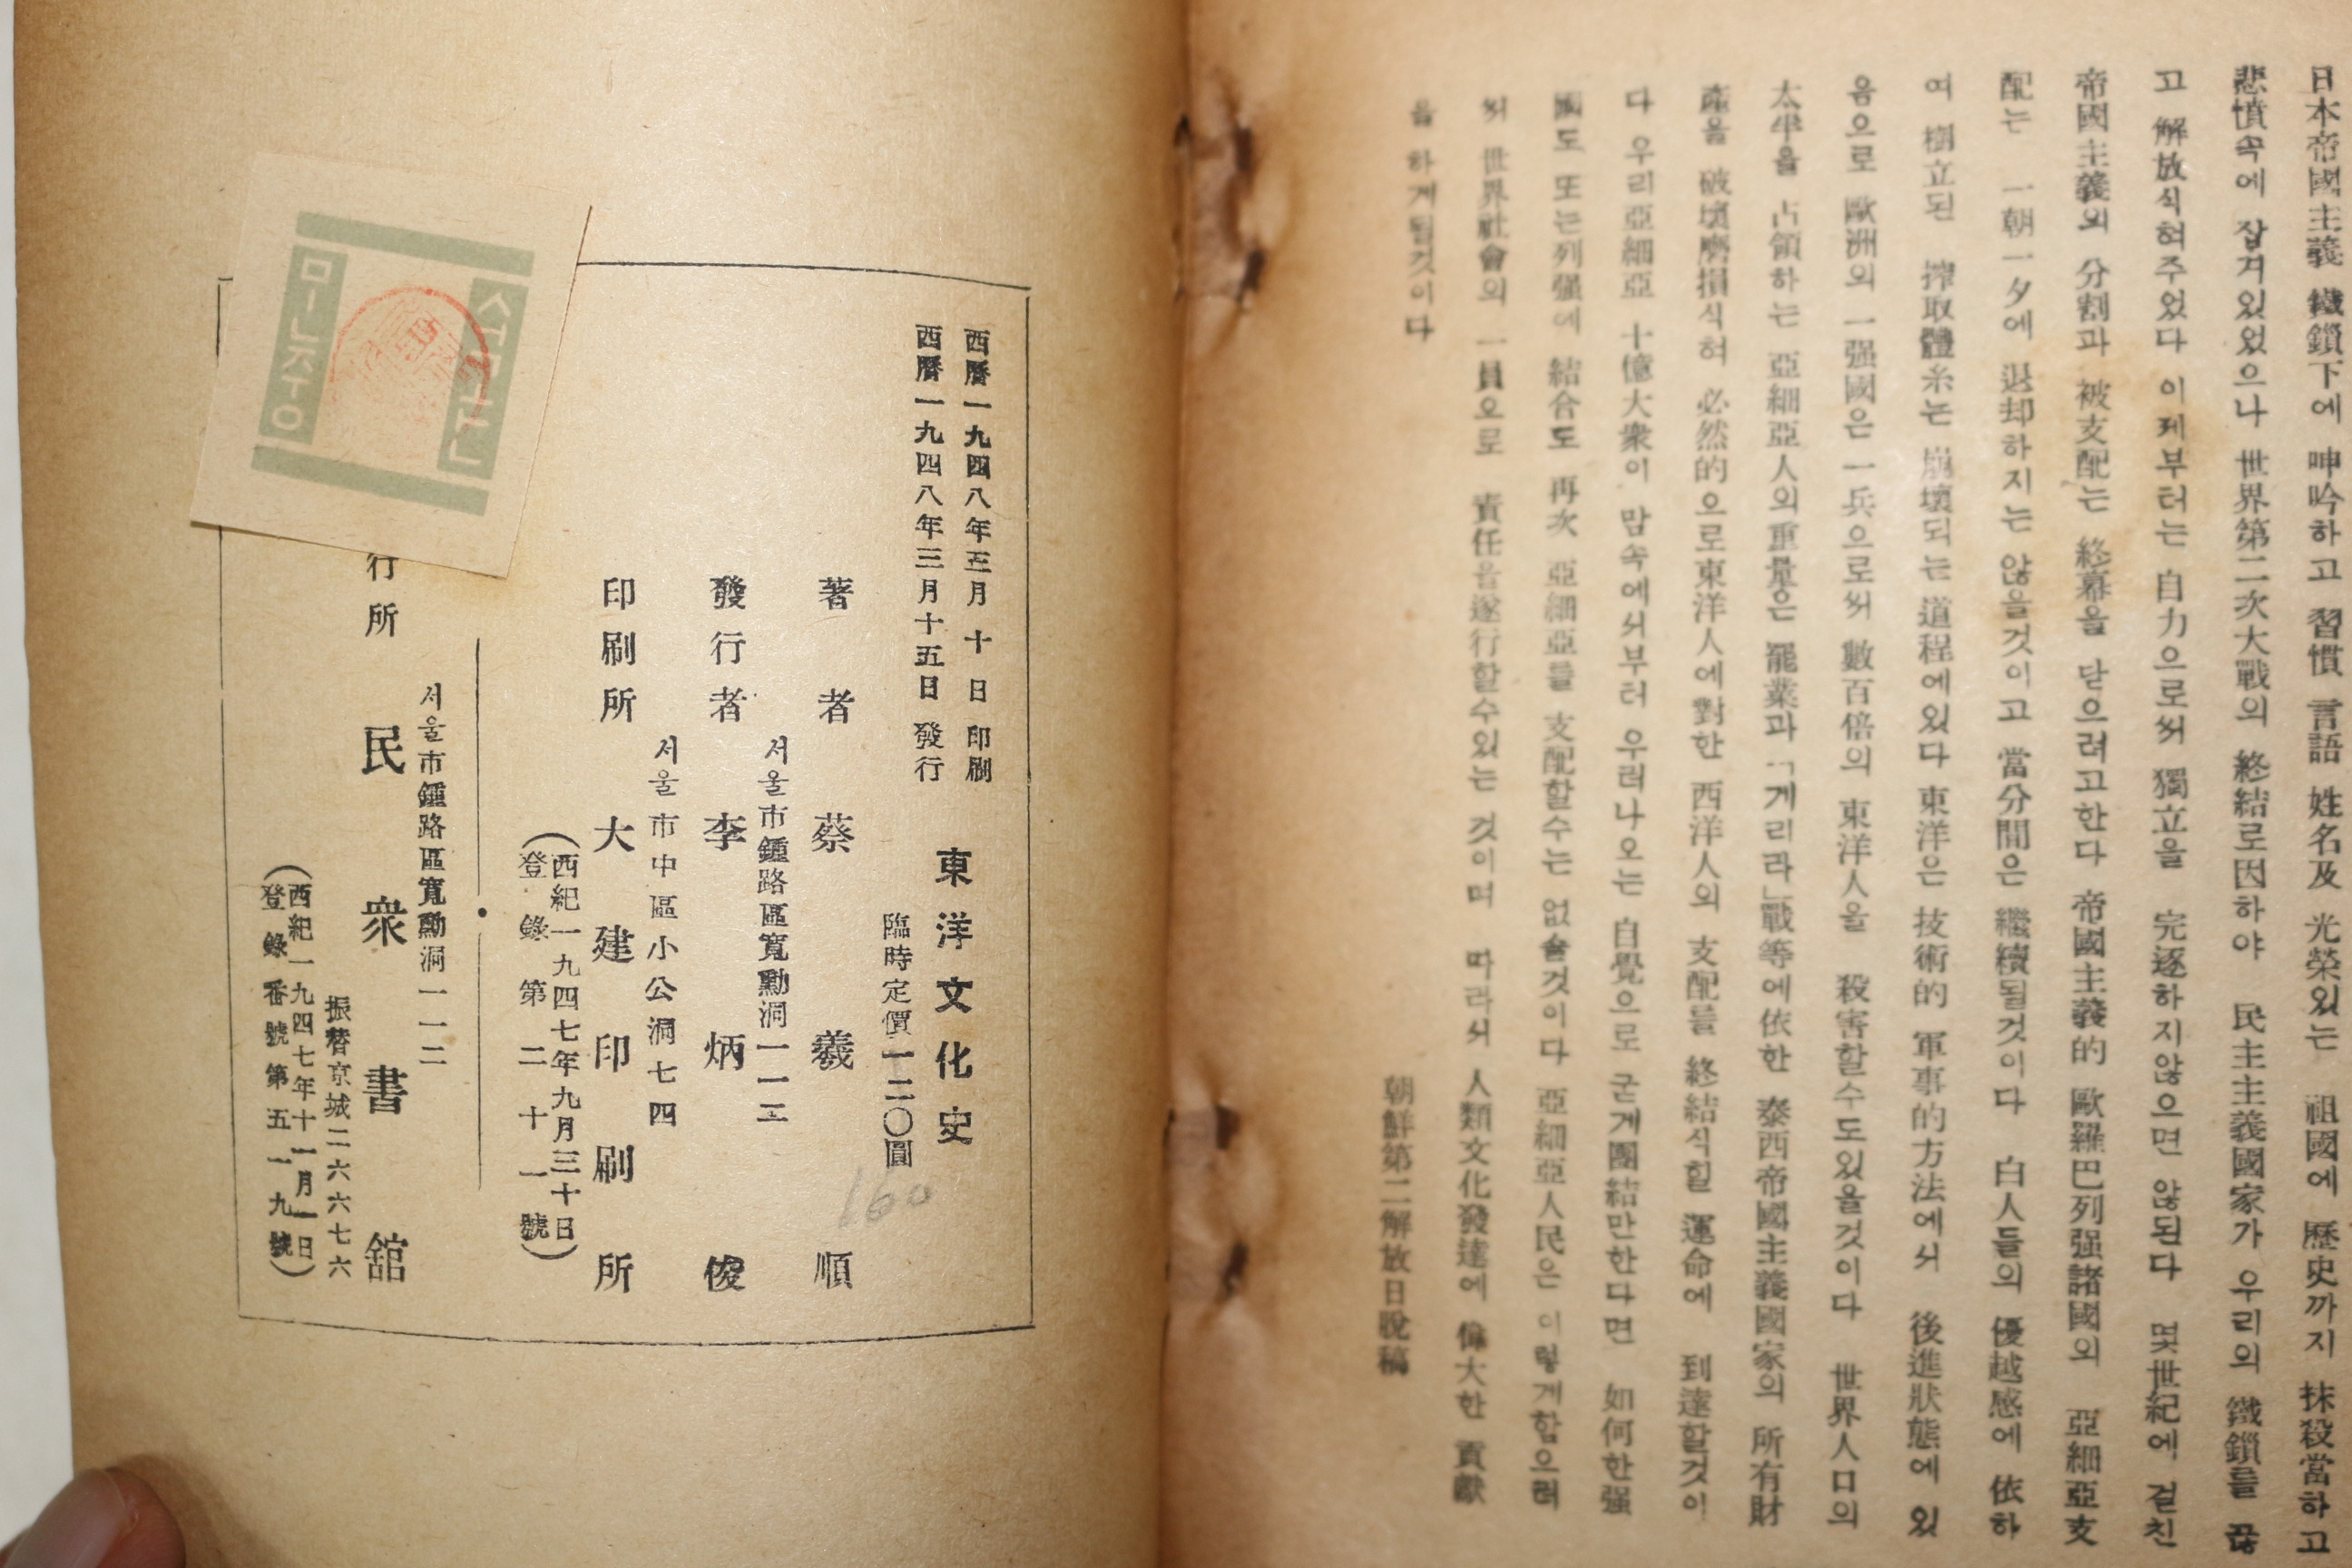 日本帝國主義 鐵鎖下에 呻吟하고 習慣 言語 姓名及 光榮있는 祖國에 歷史까지 抹殺當하고
悲憤속에 잠겨있었으나 世界第二次大戰의 終結로因하야 民主主義國家가 우리의 鐵鎖를 끊
고 解放식혀주었다 이제부터는 自力으로써 獨立을 完逐하지않으면 않된다 몇世紀에 걸친
帝國主義의 分割과 被支配는 終幕을 닫으려고한다 帝國主義的 歐羅巴列强諸國의 亞細亞支
配는 一朝一夕에 退却하지는 않을것이고 當分間은 繼續될것이다 白人들의 優越感에 依하
여 樹立된 搾取體系는 崩壞되는 道程에있다 東洋은 技術的 軍事的方法에서 後進狀態에 있
음으로 歐洲의 一强國은 一兵으로써 數百倍의 東洋人을 殺害할수도있을것이다 世界人口의
太半을 占領하는 亞細亞人의重量은 罷業과「게리라」戰等에依한 泰西帝國主義國家의 所有財
產을 破壞磨損식혀 必然的으로東洋人에對한 西洋人의 支配를 終結식힐 運命에 到達할것이
다 우리亞細亞 十億大衆이 맘속에서부터 우러나오는 自覺으로 굳게團結만한다면 如何한强
國도 또는列强에 結合도 再次 亞細亞를 支配할수는 없슬것이다 亞細亞人民은 이렇게함으러
써 世界社會의 一員으로 責任을遂行할수있는 것이며 따라서 人類文化發達에 偉大한 貢獻
을 하게될것이다
朝鮮第二解放日脫稿
西曆一九四八年三月 十 日 印刷
西曆一九四八年三月十五日 發行
東洋文化史
臨時定價一二〇圓
160
著者 蔡羲順
서울市鍾路區寬勳洞一一二
發行者 李炳俊
서울市中區小公洞七四
印刷所 大建印刷所
(西紀一九四七年九月三十日
登錄第二十一號)
서울市鍾路區寬勳洞一一二
行所 民衆書館
振替京城二六六七六
(西紀一九四七年十一月一日
登錄番號第五一九號)